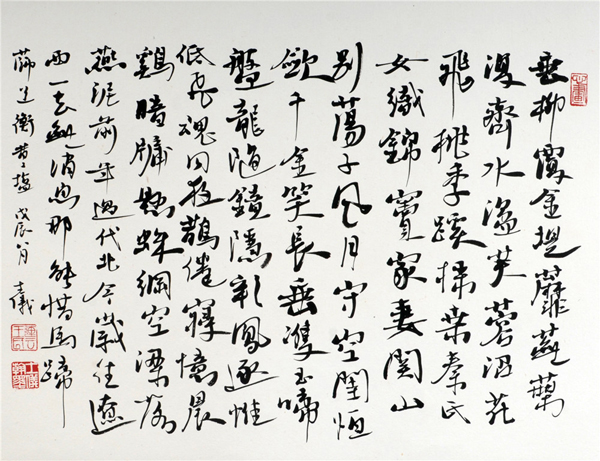 垂柳覆金堤蘼蕪葉
復齊水溢芙蓉沼花
飛桃李蹊採桑秦氏
女織錦竇家妻關山
別蕩子風月守空閨恆
斂千金笑長垂雙玉啼
盤龍隨鏡隱彩鳳逐帷
低飛魂同夜鵲倦寢憶晨
鷄暗牖懸蛛網空梁落
燕泥前年過代北今歲往遼
西一去無消息那能惜馬蹄
薛道衡昔昔鹽 戊辰八月 士儀